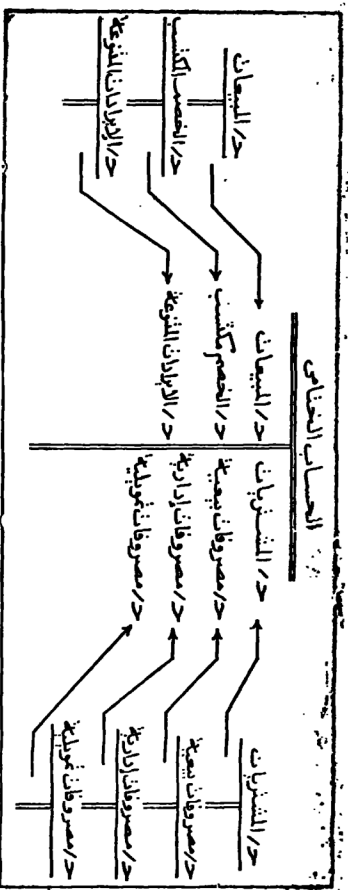 الحساب الختامى
ح/ المشتريات
ح/ مصروفات بيعية
ح/ مصروفات إدارية
ح/ مصروفات تمويلية
ح/ المبيعات
ح/ الخصم مكتسب
ح/ الإيرادات المتنوعة
ح/ المشتريات
ح/ مصروفات بيعية
ح/ مصروفات إدارية
ح/ مصروفات تمويلية
ح/ المبيعات
ح/ الخصم المكتسب
ح/ الإيرادات المتنوعة